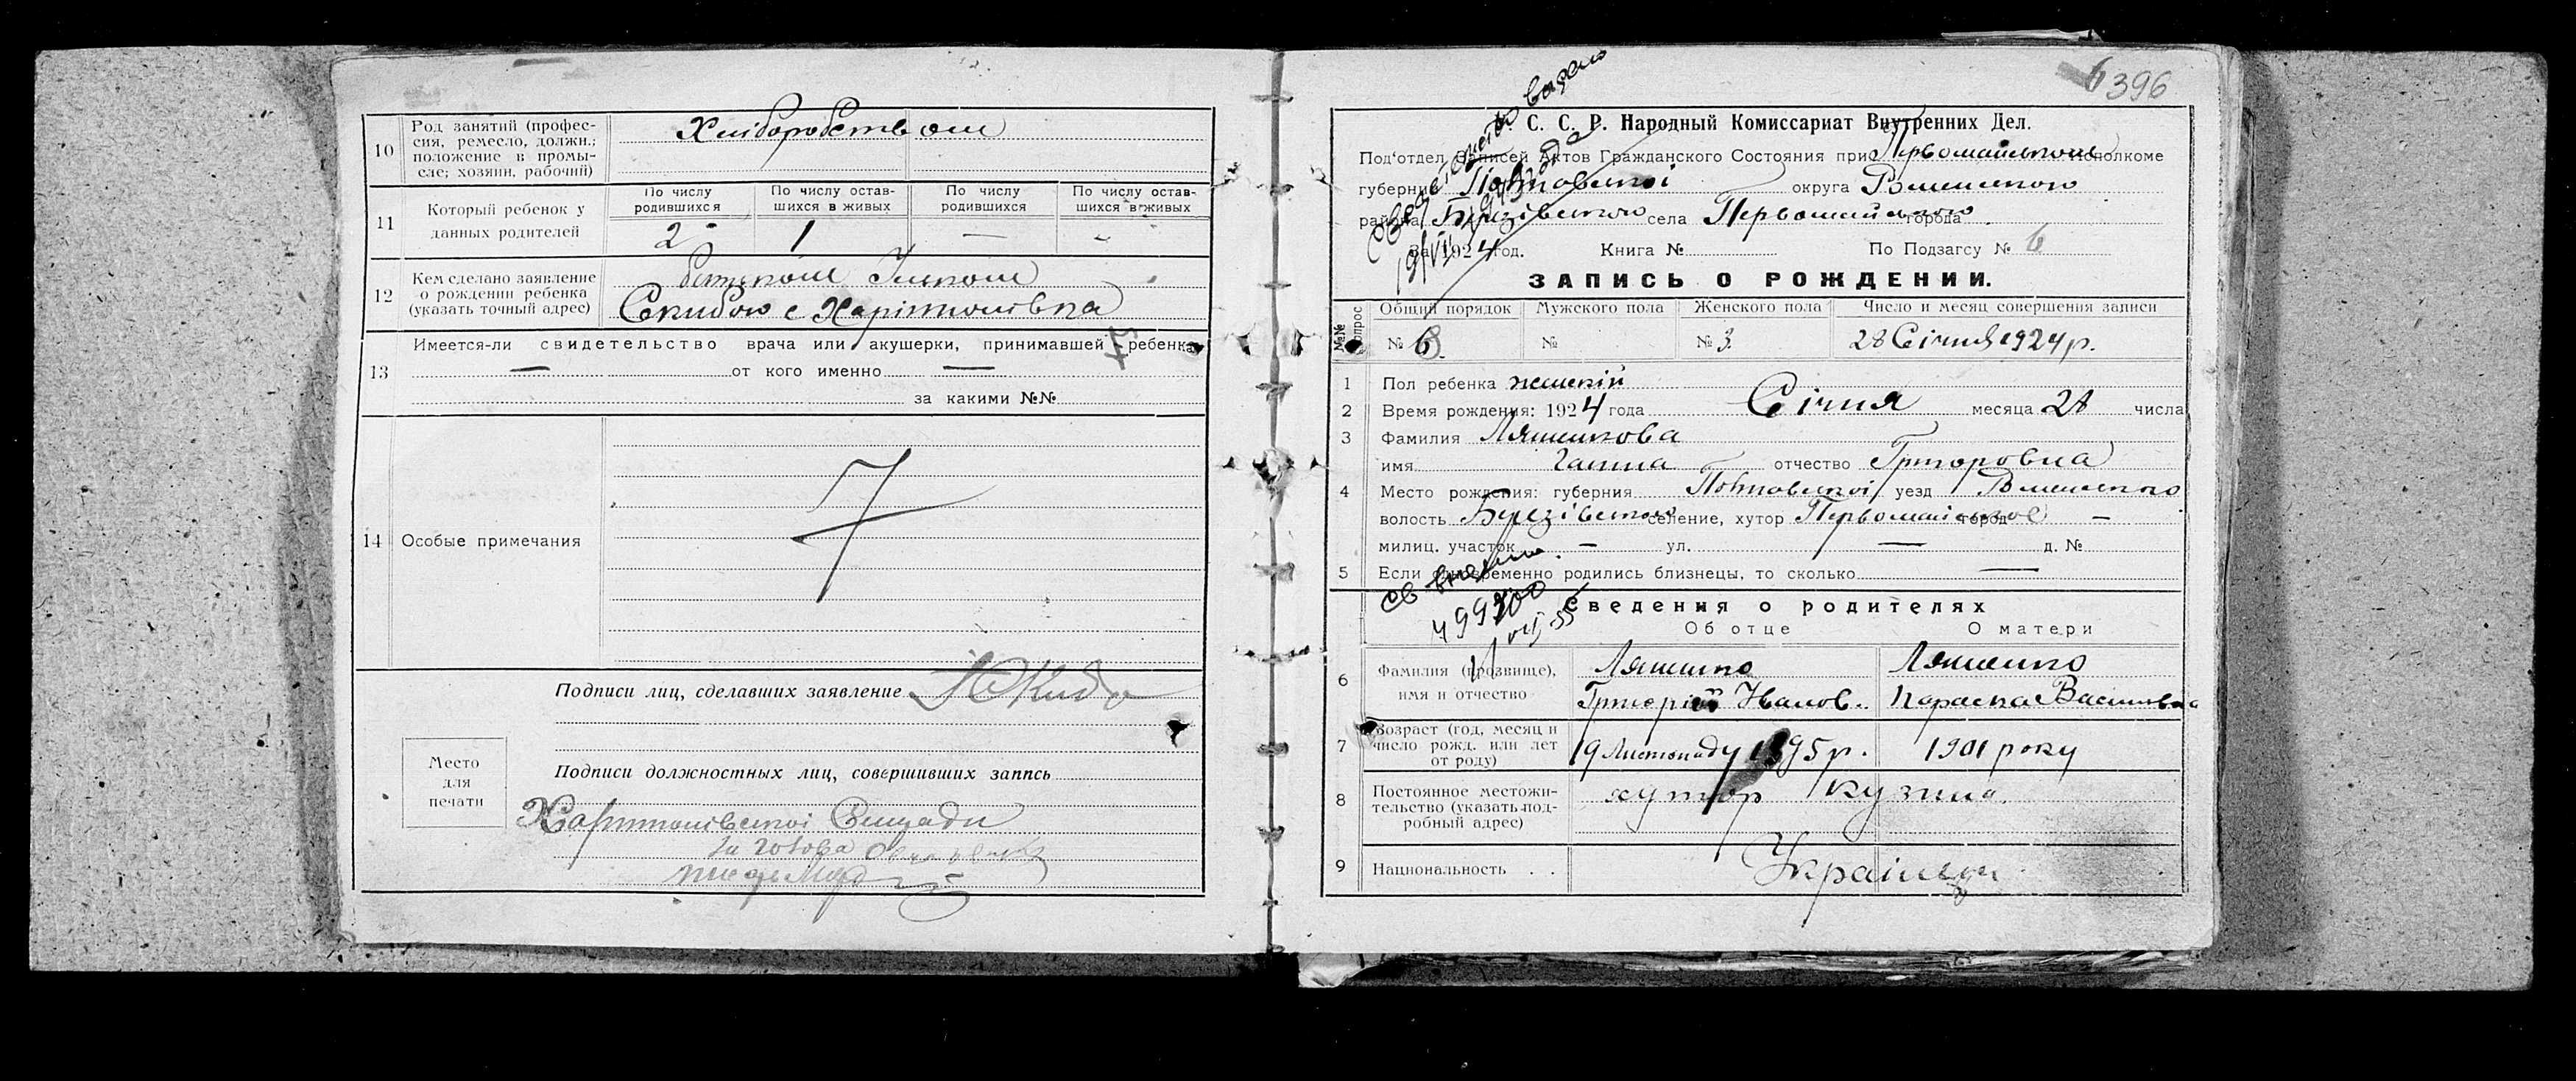 10 Род занятий (профес-
сия, ремесло, должн.;
положение в промы-
сле; хозяин, рабочий)
Хліборобством
11 Который ребенок у
данных родителей
По числу
родившихся
По числу остав-
шихся в живых
По числу
родившихся
По числу остав-
шихся в живых
2 - 1 — -
12 Кем сделано заявление
о рождении ребенка
(указать точный адрес)
батьком
Скибою с Харітонівка
Имеется-ли свидетельство врача или акушерки, принимавшей ребенка
13 — от кого именно —
за какими №№
14 Особые примечания
Подписи лиц, сделавших заявление
Место
для
печати
Подписи должностных лиц, совершивших запись
Харитонівської Сільради
За голова
6 396
У. С. С. Р. Народный Комиссариат Внутренних Дел.
Под'отдел Записей Актов Гражданского Состояния при Первомайском исполкоме
губернии Полтавської округа Роменского
района Березівського села Первомайського города
За 1924 год. Книга № По Подзагсу № 6
ЗАПИСЬ О РОЖДЕНИИ.
№№ вопрос
Общий порядок Мужского пола Женского пола Число и месяц совершения записи
№ 6. № № 3. 28 Січня 1924 р.
1 Пол ребенка женский
2 Время рождения: 1924 года Січня месяца 28 числа
3 Фамилия Ляшенкова
имя Ганна отчество Григоровна
4 Место рождения: губерния Полтавської уезд Роменского
волость Березівського селение, хутор Первомайськое город —
милиц. участок — ул. — д. №
5 Если одновременно родились близнецы, то сколько —
Св
499300
Сведения о родителях
Об отце О матери
6 Фамилия (прозвище),
имя и отчество
Ляшенко
Григорій Іванов.
Ляшенко
Параска Василівна
7 Возраст (год, месяц и
число рожд. или лет
от роду)
19 Листопаду 1895 р. 1901 року
8 Постоянное местожи-
тельство (указать под-
робный адрес)
хутор
9 Национальность . .
Українці